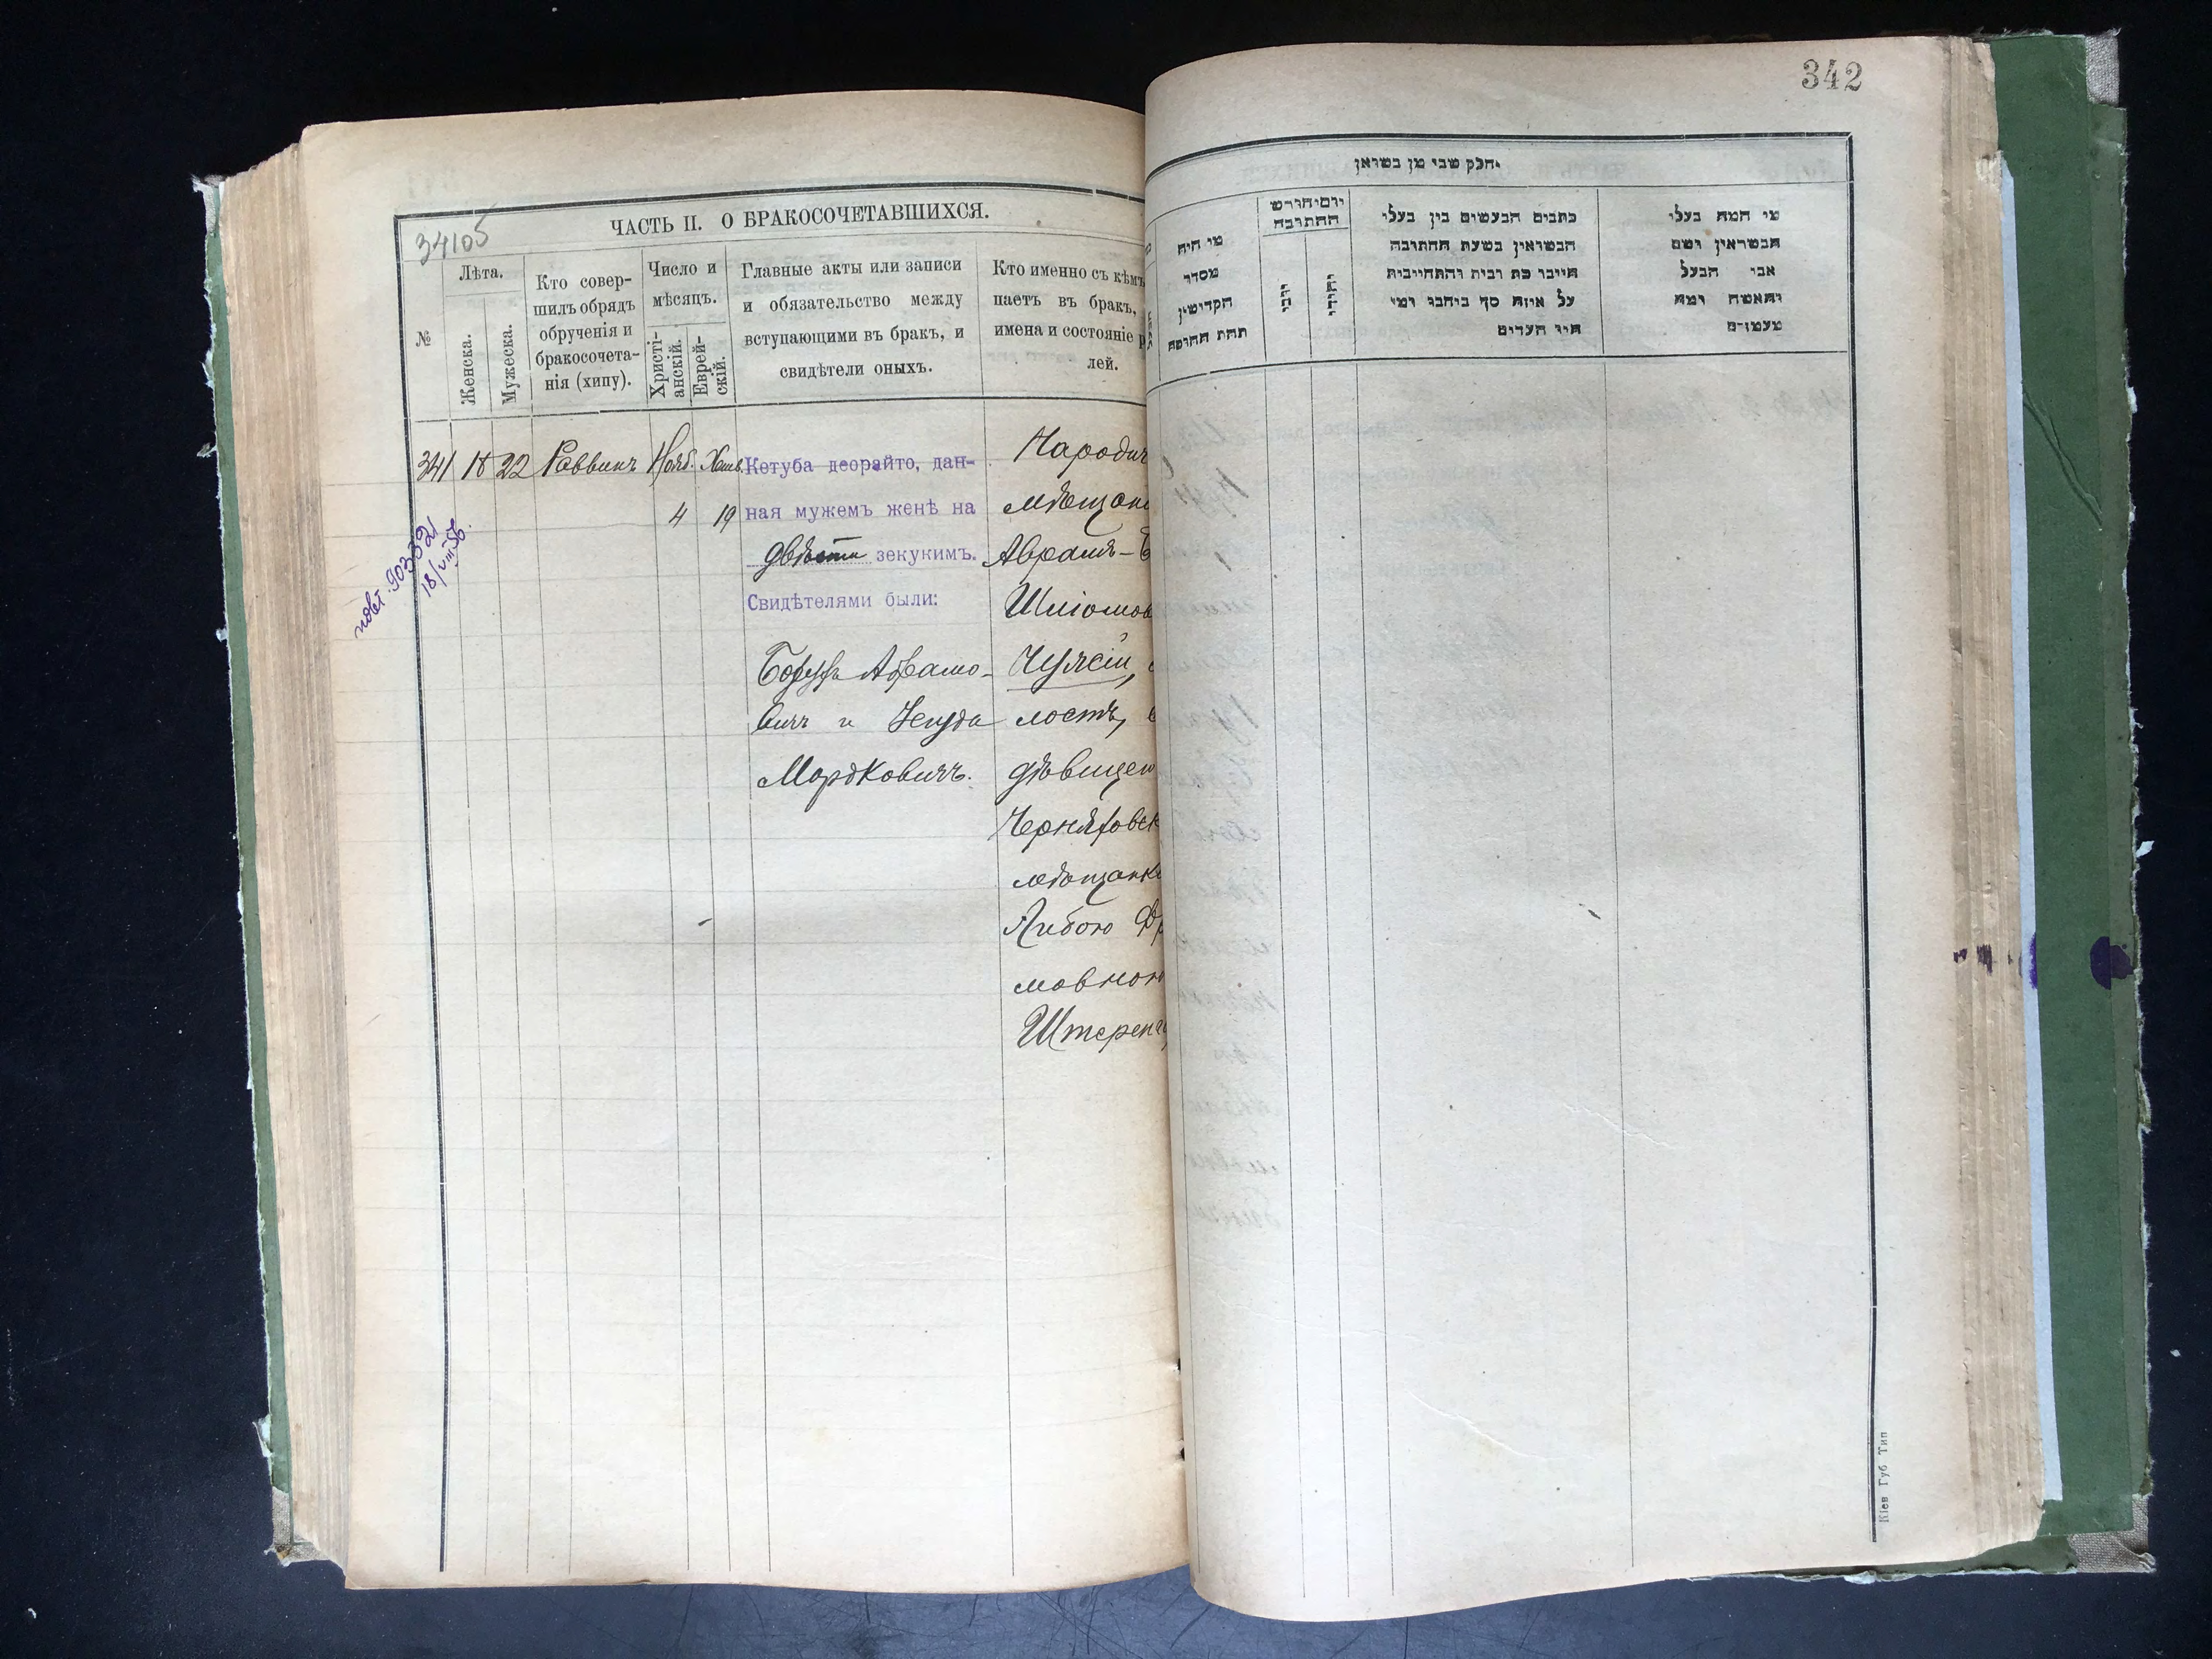 342
34105
ЧАСТЬ II. О БРАКОСОЧЕТАВШИХСЯ.
№
Лѣта.
Женска.
Мужеска.
Кто совер-
шилъ обрядъ
обрученія и
бракосочета-
нія (хипу).
Число и
мѣсяцъ.
Христі-
анскій.
Еврей-
скій.
Главные акты или записи
и обязательство между
вступающими въ бракъ, и
свидѣтели оныхъ.
Кто именно съ кѣмъ
паетъ въ бракъ,
имена и состояніе р
лей.
341 18 22 Раввинъ Нояб. Хешв.
4 19
Кетуба деорайто, дан-
ная мужемъ женѣ на
двѣсти зекукимъ.
Свидѣтелями были:
Борухъ Абрамо-
вичъ и Іегуда
Мордковичъ.
Народич
мѣщани
Абрамъ-Б
Шліомов
лость, с
дѣвицею
Черняховск
мѣщанк
Либою
мовною
Штерен
90332
18/VIII
חלק שני מן נשואין
מי היה
מסדר
הקדושין
תחת החופה
יום וחודש
החתונה
יוני
יהודי
כתבים הנעשים בין בעלי
הנשואין בשעת החתונה
על איזה סך ביחבו ומי
היו העדים
מי המה בעלי
הנשואין ושם
אבי הבעל
והאשה ומה
מעמדם
Кіев Губ Тип